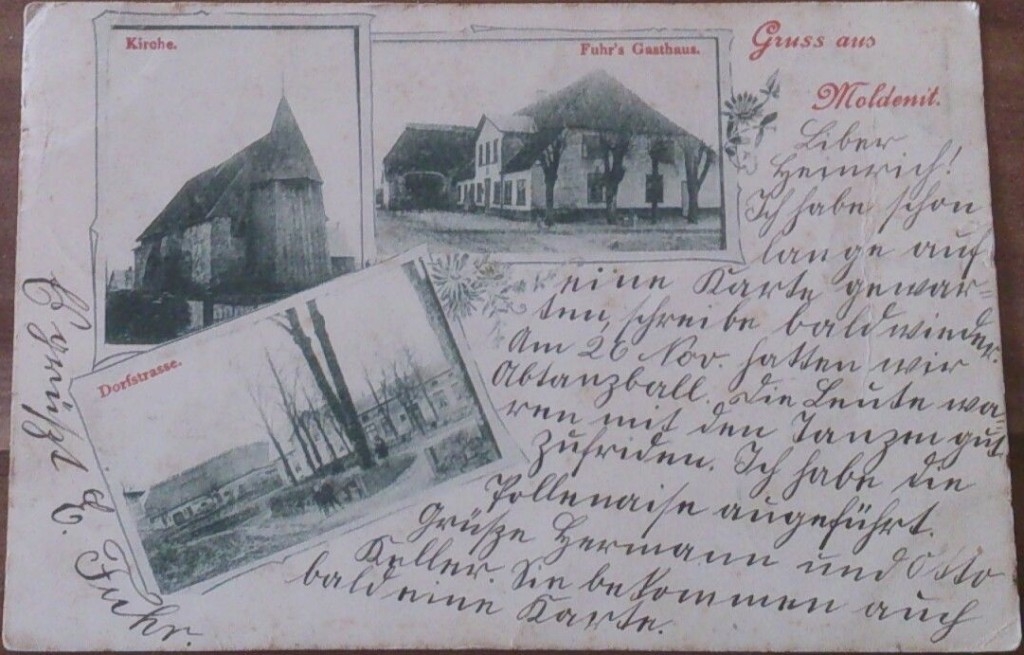 Kirche.
Fuhr's Gasthaus.
Gruss aus
Moldenit.
Dorfstrasse.
Liber
Heinrich!
Ich habe schon
lange auf
eine Karte gewar-
ten, schreibe bald wieder.
Am 26 Nov. hatten wir
Abtanzball. Die Leute wa-
ren mit den Tanzen gut
zufriden. Ich habe die
Pollenaise augeführt.
Grüße Hermann und Otto
Keller. Sie bekommen auch
bald eine Karte.
Fuhr.